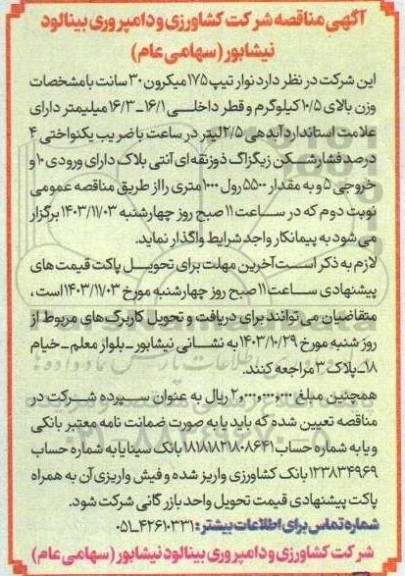 آگهی مناقصه شرکت کشاورزی و دامپروری بینالود
نیشابور (سهامی عام)
این شرکت در نظر دارد نوار تیپ ۱۷۵ میکرون ۳۰ سانت با مشخصات
وزن بالای ۱۰/۵ کیلوگرم و قطر داخلی ۱۶/۱_۱۶/۳ میلیمتر دارای
علامت استاندارد آبدهی ۲/۵ لیتر در ساعت با ضریب یکنواختی ۴
درصد فشارشکن زیگزاگ ذوزنقه ای آنتی بلاک دارای ورودی ۱۰ و
خروجی ۵ و به مقدار ۵۵۰۰ رول ۱۰۰۰ متری را از طریق مناقصه عمومی
نوبت دوم که در ساعت ۱۱ صبح روز چهارشنبه ۱۴۰۳/۱۱/۰۳ برگزار
می شود به پیمانکار واجد شرایط واگذار نماید.
لازم به ذکر است آخرین مهلت برای تحویل پاکت قیمت های
پیشنهادی ساعت ۱۱ صبح روز چهارشنبه مورخ ۱۴۰۳/۱۱/۰۳ است،
متقاضیان می توانند برای دریافت و تحویل کاربرگ های مربوط از
روز شنبه مورخ ۱۴۰۳/۱۰/۲۹ به نشانی نیشابور _ بلوار معلم _ خیام
۱۸_ پلاک ۳ مراجعه کنند.
همچنین مبلغ ۲,۰۰۰,۰۰۰,۰۰۰ ریال به عنوان سپرده شرکت در
مناقصه تعیین شده که باید یا به صورت ضمانت نامه معتبر بانکی
و یا به شماره حساب ۱۸۱۸۱۸۲۱۸۰۸۶۴۱ بانک سینا یا به شماره حساب
۱۲۳۸۳۴۹۶۹ بانک کشاورزی واریز شده و فیش واریزی آن به همراه
پاکت پیشنهادی قیمت تحویل واحد بازرگانی شرکت شود.
شماره تماس برای اطلاعات بیشتر: ۴۲۶۱۰۳۳۱_۰۵۱
شرکت کشاورزی و دامپروری بینالود نیشابور (سهامی عام)